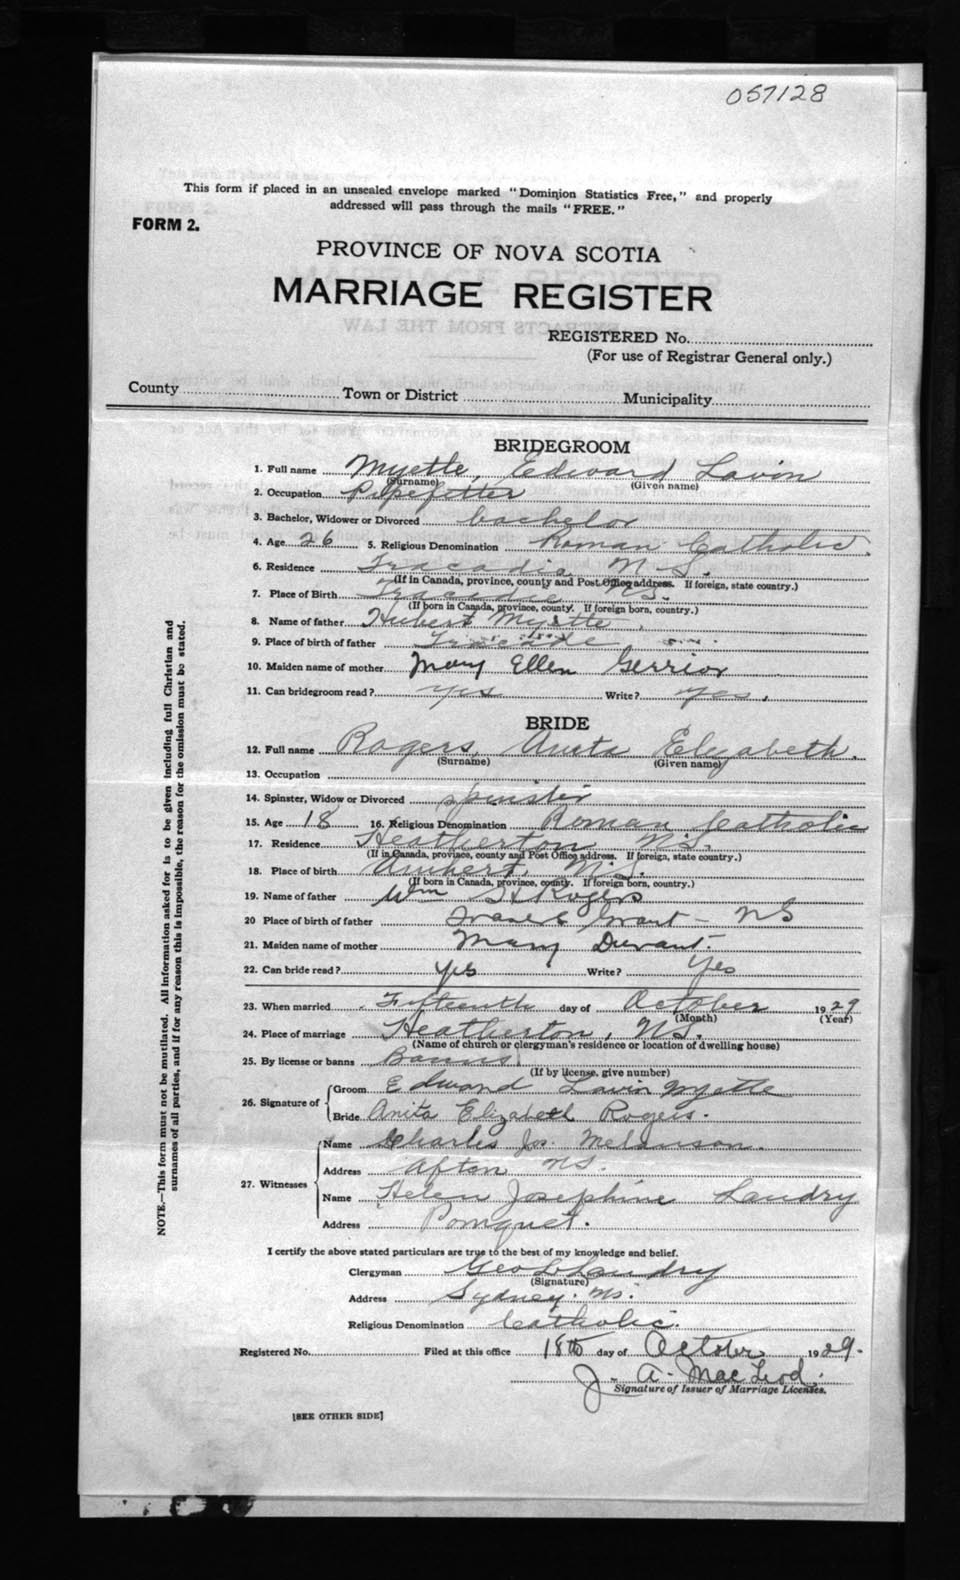 057128
This form if placed in an unsealed envelope marked "Dominion Statistics Free," and properly
addressed will pass through the mails "FREE."
FORM 2.
PROVINCE OF NOVA SCOTIA
MARRIAGE REGISTER
REGISTERED No.
(For use of Registrar General only.)
County Town or District Municipality
BRIDEGROOM
1. Full name Myette, Edward Lavin
(Surname) (Given name)
2. Occupation Pipefitter
3. Bachelor, Widower or Divorced bachelor
4. Age 26 5. Religious Denomination Roman Catholic.
6. Residence Tracadie N.S.
(If in Canada, province, county and Post Office address. If foreign, state country.)
7. Place of Birth Tracadie N.S.
(If born in Canada, province, county. If foreign born, country.)
8. Name of father Hubert Myette
9. Place of birth of father Tracadie
10. Maiden name of mother Mary Ellen Gerrior
11. Can bridegroom read? yes Write? yes.
BRIDE
12. Full name Rogers, Anita Elizabeth.
(Surname) (Given name)
13. Occupation
14. Spinster, Widow or Divorced spinster
15. Age 18 16. Religious Denomination Roman Catholic
17. Residence Heatherton N.S.
(If in Canada, province, county and Post Office address. If foreign, state country.)
18. Place of birth Amherst, N.S.
(If born in Canada, province, county. If foreign born, country.)
19. Name of father Wm H Rogers
20 Place of birth of father Grant - NS
21. Maiden name of mother Mary Durant.
22. Can bride read? yes Write? yes
23. When married Fifteenth day of October 1929
(Month) (Year)
24. Place of marriage Heatherton, N.S.
(Name of church or clergyman's residence or location of dwelling house)
25. By license or banns Banns.
(If by license, give number)
26. Signature of Groom Edward Lavin Myette
Bride Anita Elizabeth Rogers.
27. Witnesses Name Charles Jos. Melanson.
Address Afton N.S.
Name Helen Josephine Landry
Address Pomquet.
I certify the above stated particulars are true to the best of my knowledge and belief.
Clergyman Geo L Landry
(Signature)
Address Sydney. N.S.
Religious Denomination Catholic.
Registered No. Filed at this office 18th day of October 1929.
J. A. MacLeod.
Signature of Issuer of Marriage Licenses.
[SEE OTHER SIDE]
NOTE.—This form must not be mutilated. All information asked for is to be given including full Christian and
surnames of all parties, and if for any reason this is impossible, the reason for the omission must be stated.